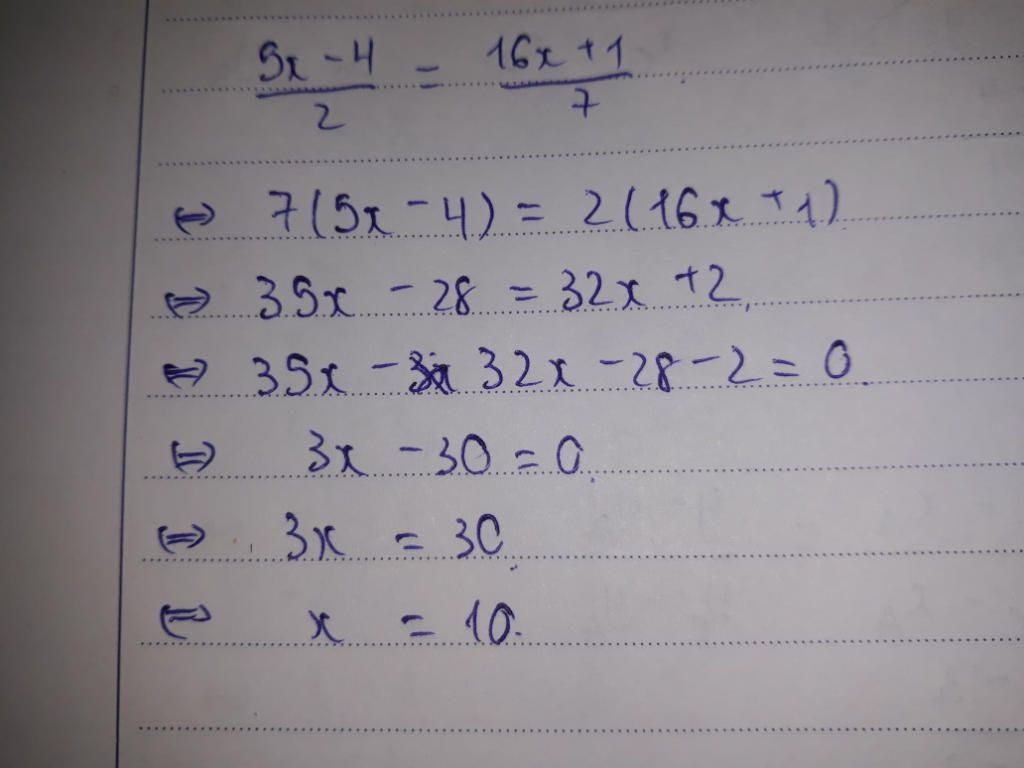 5x - 4 / 2 = 16x + 1 / 7
⇔ 7(5x - 4) = 2(16x + 1)
⇔ 35x - 28 = 32x + 2
⇔ 35x - 32x - 28 - 2 = 0
⇔ 3x - 30 = 0
⇔ 3x = 30
⇔ x = 10